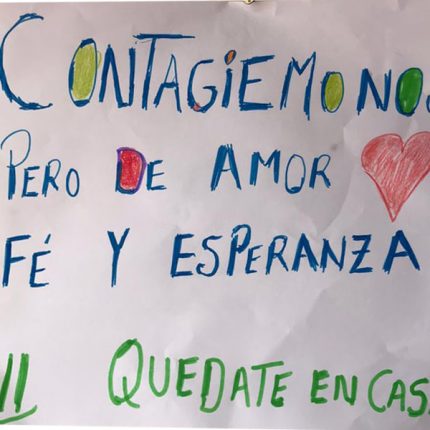 CONTAGIEMONOS
PERO DE AMOR
FÉ Y ESPERANZA
!! QUEDATE EN CAS